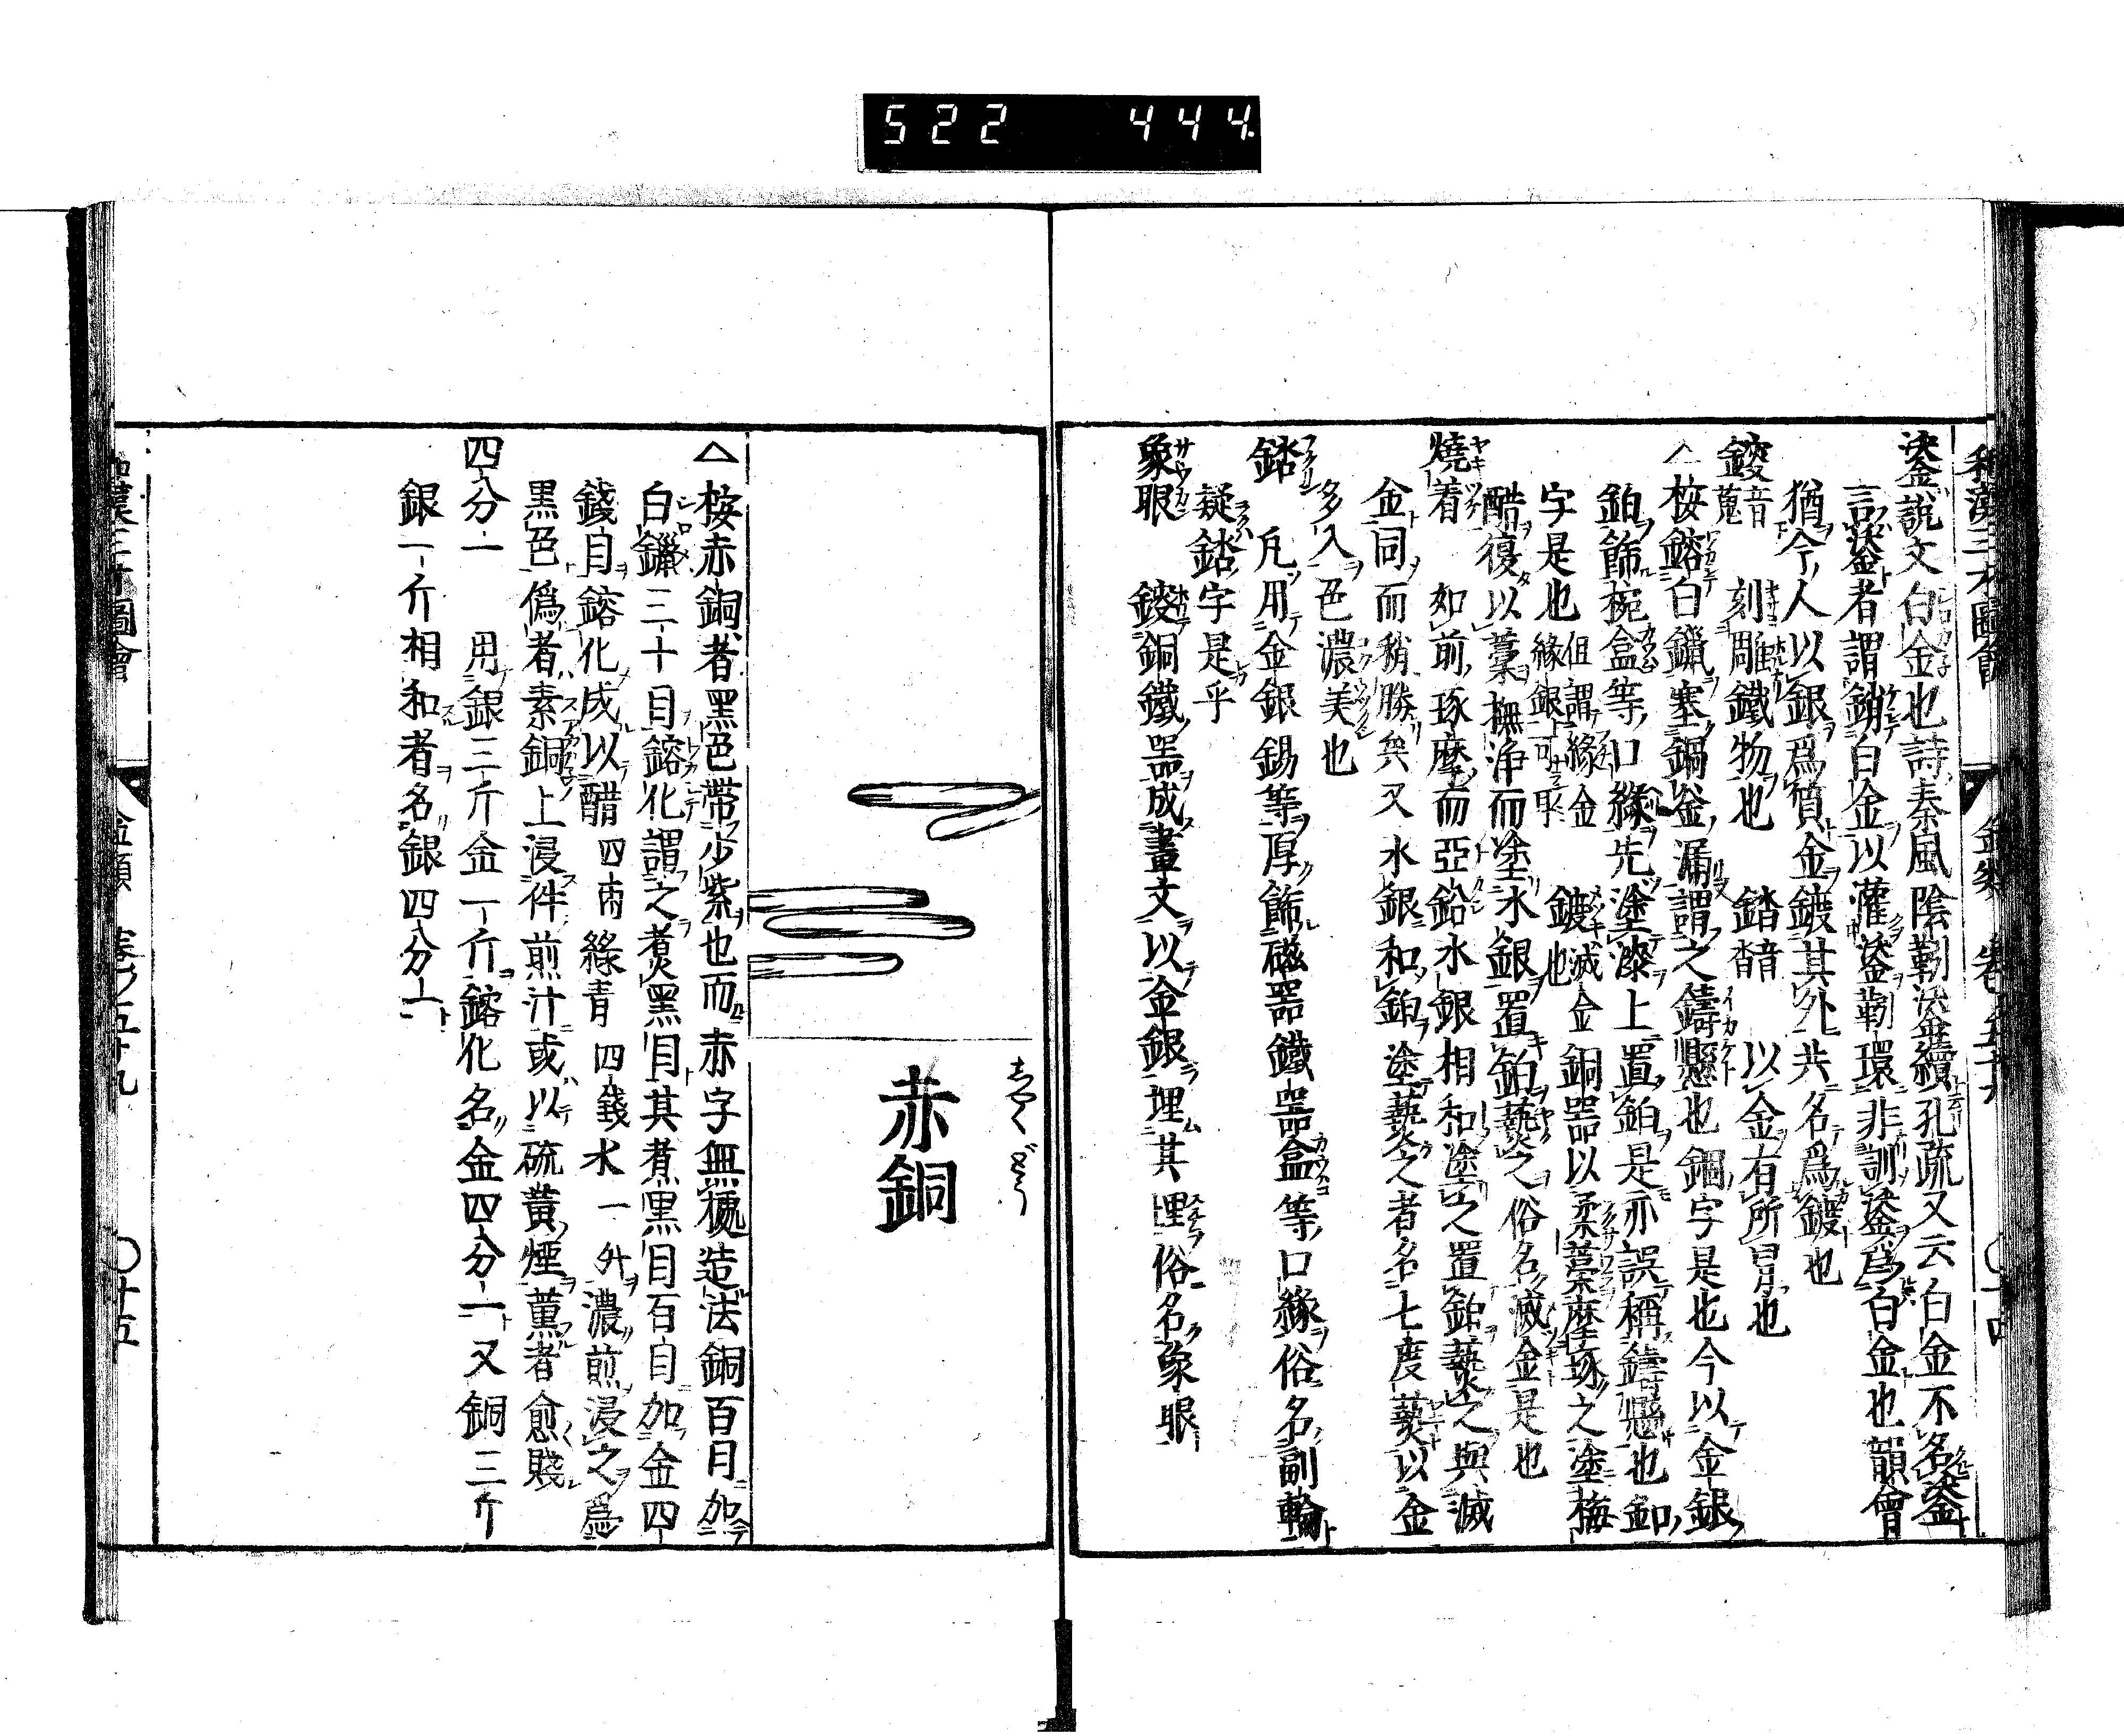 522 444.
鋈說文白金也詩秦風陰靷鋈續孔疏又云白金不名鋈
言鋈者謂銷白金以灌鋈靷環非訓鋈爲白金也韻會
猶今人以銀爲質金鍍其外共名爲鍍也
鋑音蒐 刻雕鐵物也 錔音沓 以金有所冒也
△桉鎔白鑞塞鍋釜漏謂之鑄懸也錮字是也今以金銀
鉑飾椀盒等口緣先塗漆上置鉑是亦誤稱鑄懸也釦
字是也但謂緣金緣銀可取 鍍滅金也 銅器以柔藁麻琢之塗梅
醋復以藁撫淨而塗水銀置鉑爇之俗名滅金是也
燒着 如前琢磨而亞鉛水銀相和塗之置鉑爇之與滅
金同而稍勝矣又水銀和鉑塗爇之者名七度爇以金
多入色濃美也
錔 凡用金銀錫等厚飾磁器鐵器盒等口緣俗名副輪
疑錔字是乎
象眼 鋑銅鐵器成畫文以金銀埋其埋俗名象眼
赤銅
△桉赤銅者黑色帶少紫也而赤字無稷造法銅百目加
白鑞三十目鎔化謂之煮黑目其煮黑目百目加金四
錢目鎔化成以醋四兩緑青四錢水一升濃煎浸之爲
黑色僞者素銅上浸件煎汁或以硫黃煙薰者愈賤
四分一 用銀三斤金一斤鎔化名金四分一又銅三斤
銀一斤相和者名銀四分一